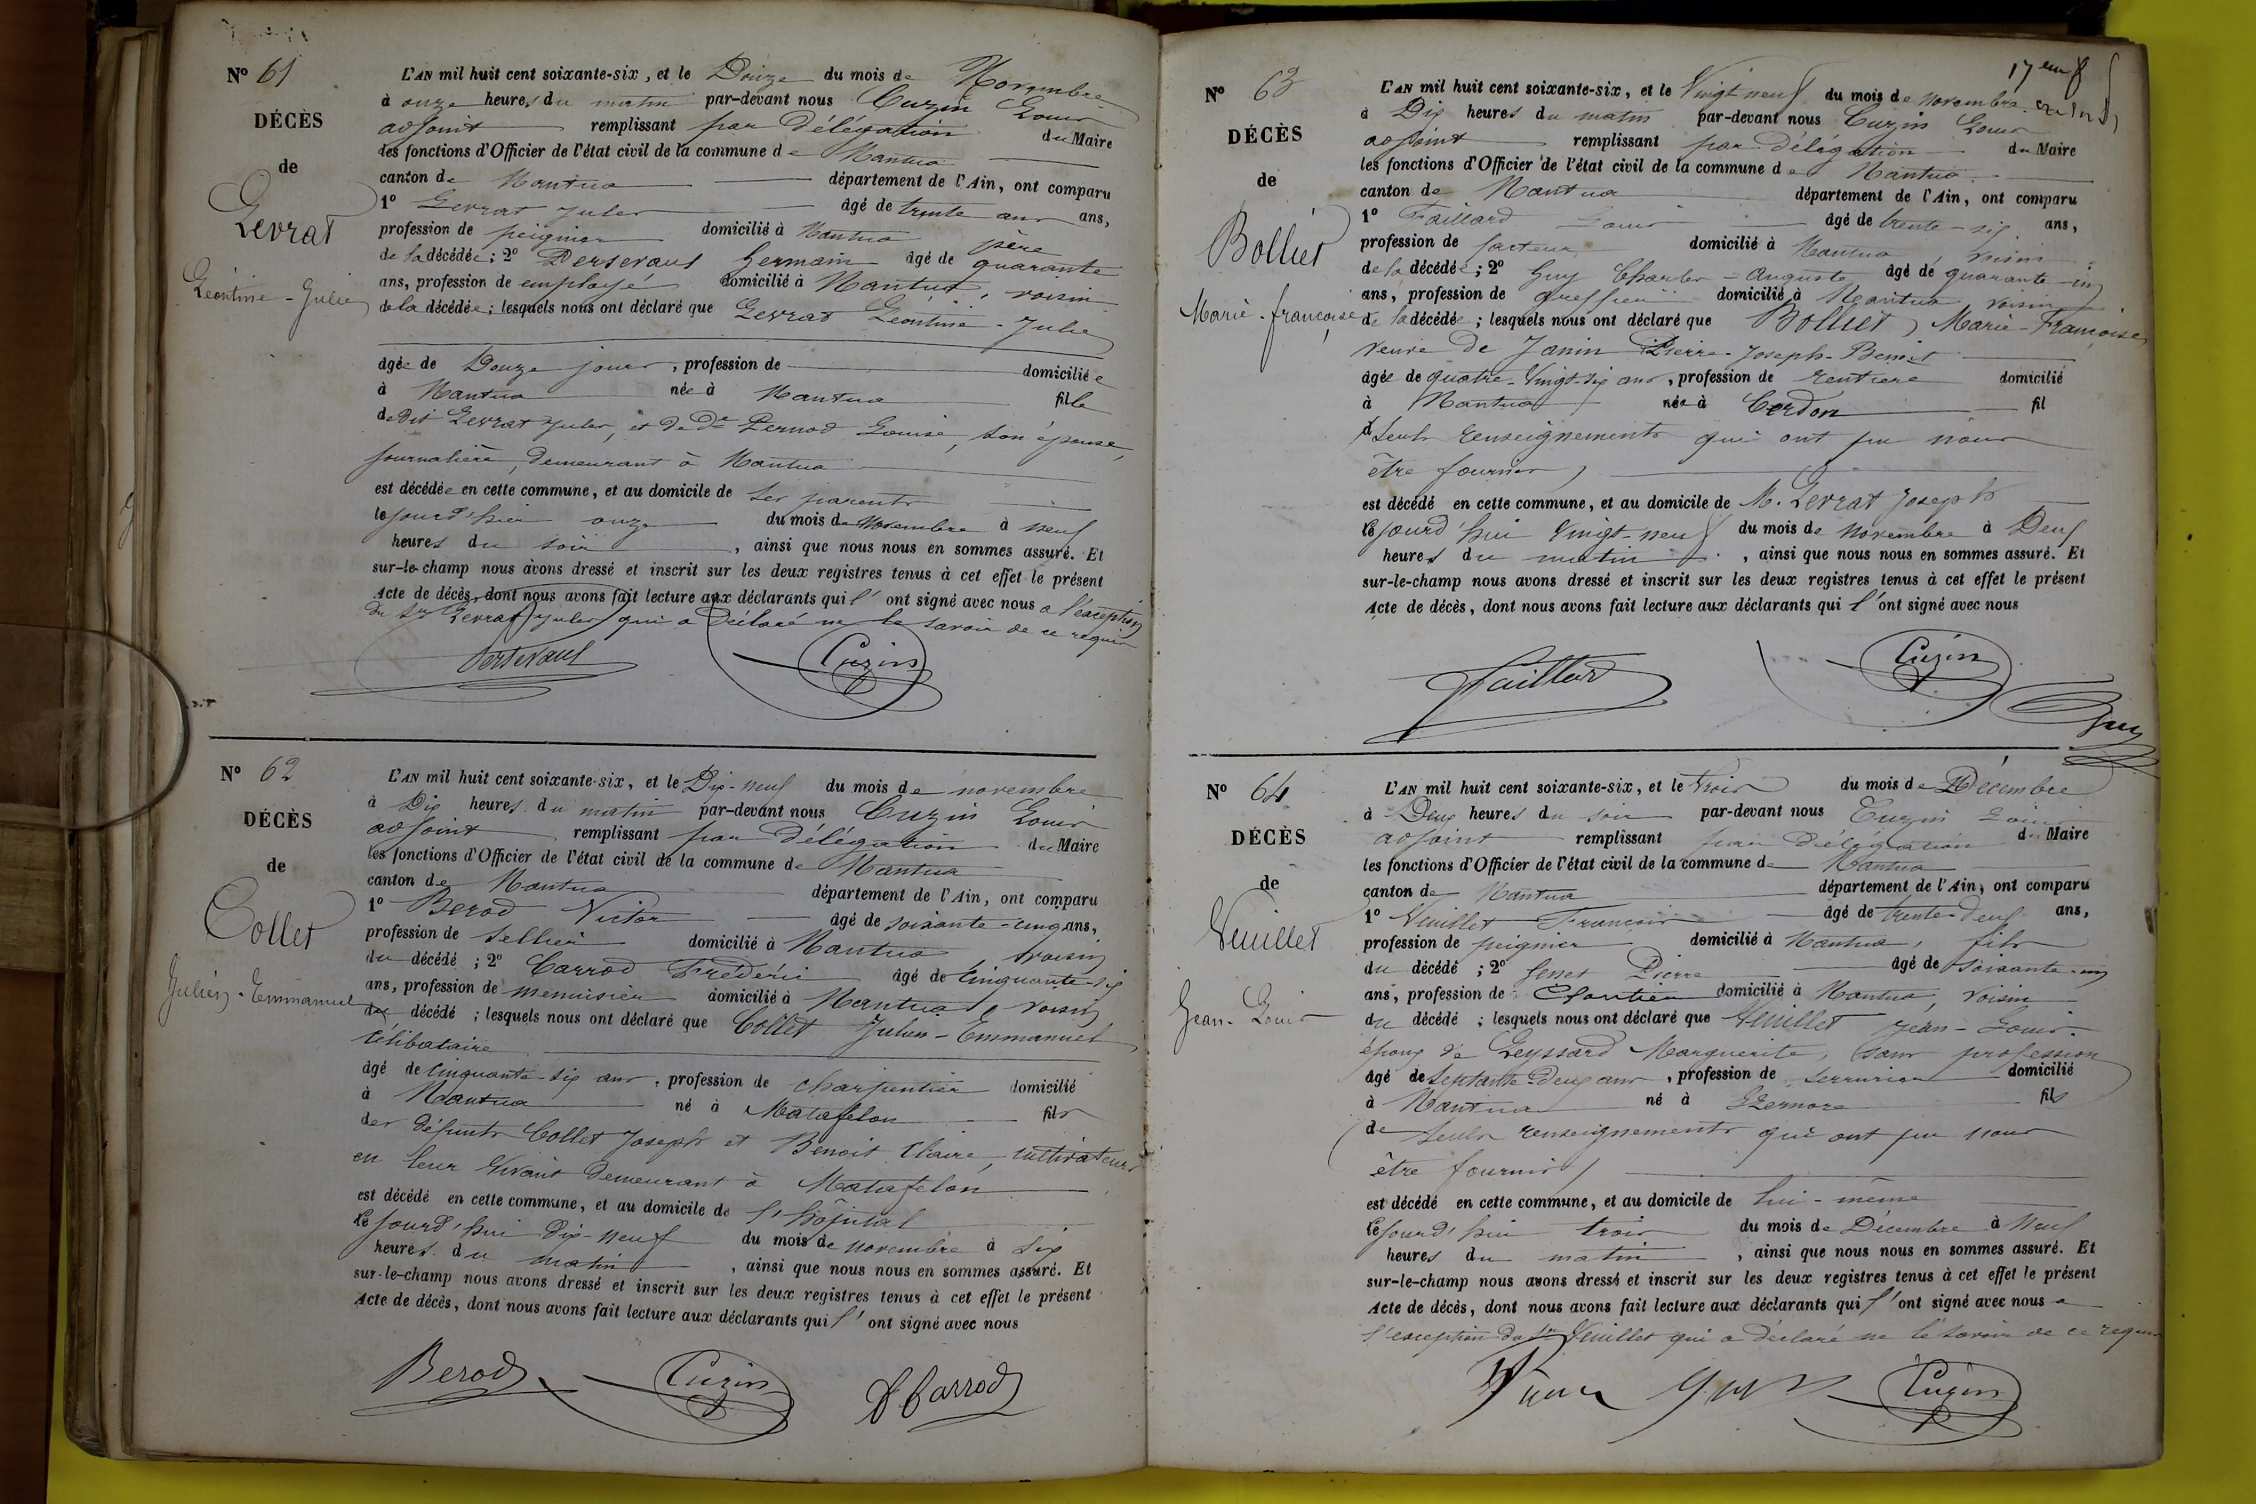 N° 61
DÉCÈS
de
Levrat
Léontine - Julie
L'AN mil huit cent soixante-six, et le Douze du mois de Novembre
à onze heures du matin par-devant nous Cuzin Louis
adjoint remplissant par délégation du Maire
les fonctions d'Officier de l'état civil de la commune de Nantua
canton de Nantua département de l'Ain, ont comparu
1° Levrat Jules âgé de trente ans ans,
profession de peignier domicilié à Nantua père
de la décédée; 2° Perseraul Germain âgé de quarante
ans, profession de employé domicilié à Nantua, voisin
de la décédée; lesquels nous ont déclaré que Levrat Léontine - Julie
âgée de Douze jours, profession de domiciliée
à Nantua née à Nantua fille
de dit Levrat Jules, et de De Pernod Louise, son épouse,
journalière, demeurant à Nantua
est décédée en cette commune, et au domicile de ses parents
le jourd'hier onze du mois de Novembre à neuf
heures du soir, ainsi que nous nous en sommes assuré. Et
sur-le-champ nous avons dressé et inscrit sur les deux registres tenus à cet effet le présent
Acte de décès, dont nous avons fait lecture aux déclarants qui l'ont signé avec nous à l'exception
du Sr Levrat Jules qui a déclaré ne le savoir de ce requis
Perseraul Cuzin
N° 62
DÉCÈS
de
Collet
Julien - Emmanuel
L'AN mil huit cent soixante-six, et le Dix-neuf du mois de novembre
à Dix heures du matin par-devant nous Cuzin Louis
adjoint remplissant par délégation du Maire
les fonctions d'Officier de l'état civil de la commune de Nantua
canton de Nantua département de l'Ain, ont comparu
1° Berod Victor âgé de soixante-cinq ans,
profession de sellier domicilié à Nantua, voisin
du décédé; 2° Carrod Frédéric âgé de cinquante-six
ans, profession de menuisier domicilié à Nantua, voisin
du décédé; lesquels nous ont déclaré que Collet Julien - Emmanuel
célibataire
âgé de cinquante-six ans, profession de charpentier domicilié
à Nantua né à Matafelon fils
des défunts Collet Joseph et Benoit Claire, cultivateurs
en leur vivant demeurant à Matafelon
est décédé en cette commune, et au domicile de l'hôpital
le jourd'hui dix-neuf du mois de novembre à six
heures du matin, ainsi que nous nous en sommes assuré. Et
sur-le-champ nous avons dressé et inscrit sur les deux registres tenus à cet effet le présent
Acte de décès, dont nous avons fait lecture aux déclarants qui l'ont signé avec nous
Berod Cuzin Carrod
17eme f
N° 63
DÉCÈS
de
Bolliet
Marie - françoise
L'AN mil huit cent soixante-six, et le Vingt neuf du mois de novembre
à Dix heures du matin par-devant nous Cuzin Louis
adjoint remplissant par délégation du Maire
les fonctions d'Officier de l'état civil de la commune de Nantua
canton de Nantua département de l'Ain, ont comparu
1° Faillard Louis âgé de trente-six ans,
profession de facteur domicilié à Nantua voisin
de la décédée; 2° Guy Charles - Auguste âgé de quarante-un
ans, profession de greffier domicilié à Nantua voisin
de la décédée; lesquels nous ont déclaré que Bolliet, Marie-Françoise,
veuve de Janin Pierre-Joseph-Benoit
âgée de quatre-vingt-six ans, profession de rentière domicilié
à Nantua née à Cerdon fil
d seuls renseignements qui ont pu nous
être fournis)
est décédé en cette commune, et au domicile de M. Levrat Joseph
le jourd'hui vingt-neuf du mois de novembre à Deux
heures du matin, ainsi que nous nous en sommes assuré. Et
sur-le-champ nous avons dressé et inscrit sur les deux registres tenus à cet effet le présent
Acte de décès, dont nous avons fait lecture aux déclarants qui l'ont signé avec nous
Faillard Cuzin Guy
N° 64
DÉCÈS
de
Veuillet
Jean - Louis
L'AN mil huit cent soixante-six, et le trois du mois de Décembre
à Deux heures du soir par-devant nous Cuzin Louis
adjoint remplissant par délégation du Maire
les fonctions d'Officier de l'état civil de la commune de Nantua
canton de Nantua département de l'Ain, ont comparu
1° Veuillet François âgé de trente-deux ans,
profession de peignier domicilié à Nantua, fils
du décédé; 2° Pierre âgé de soixante-un
ans, profession de domicilié à Nantua, voisin
du décédé; lesquels nous ont déclaré que Veuillet Jean-Louis
époux de Leyssard Marguerite, sans profession
âgé de septante-deux ans, profession de serrurier domicilié
à Nantua né à Izernore fils
de seuls renseignements qui ont pu nous
être fournis)
est décédé en cette commune, et au domicile de lui-même
le jourd'hui trois du mois de Décembre à Neuf
heures du matin, ainsi que nous nous en sommes assuré. Et
sur-le-champ nous avons dressé et inscrit sur les deux registres tenus à cet effet le présent
Acte de décès, dont nous avons fait lecture aux déclarants qui l'ont signé avec nous a
l'exception du Sr Veuillet qui a déclaré ne le savoir de ce requis
Cuzin